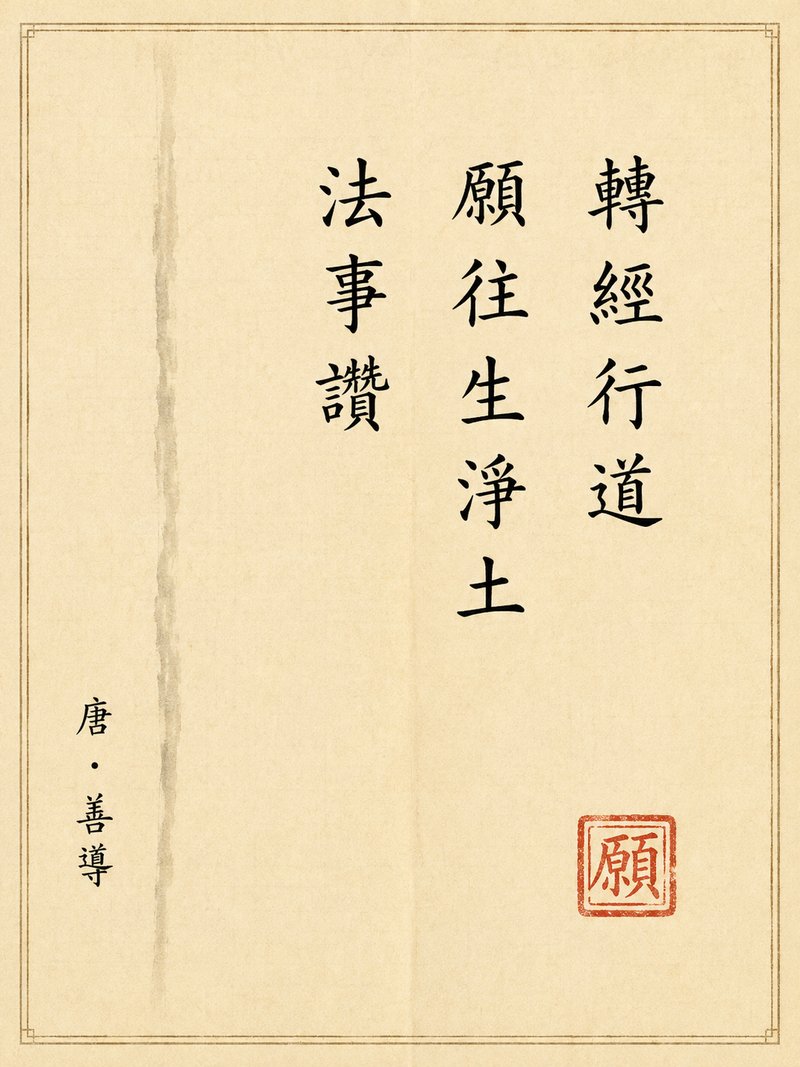 轉經行道
願往生淨土
法事讚
唐・善導
願